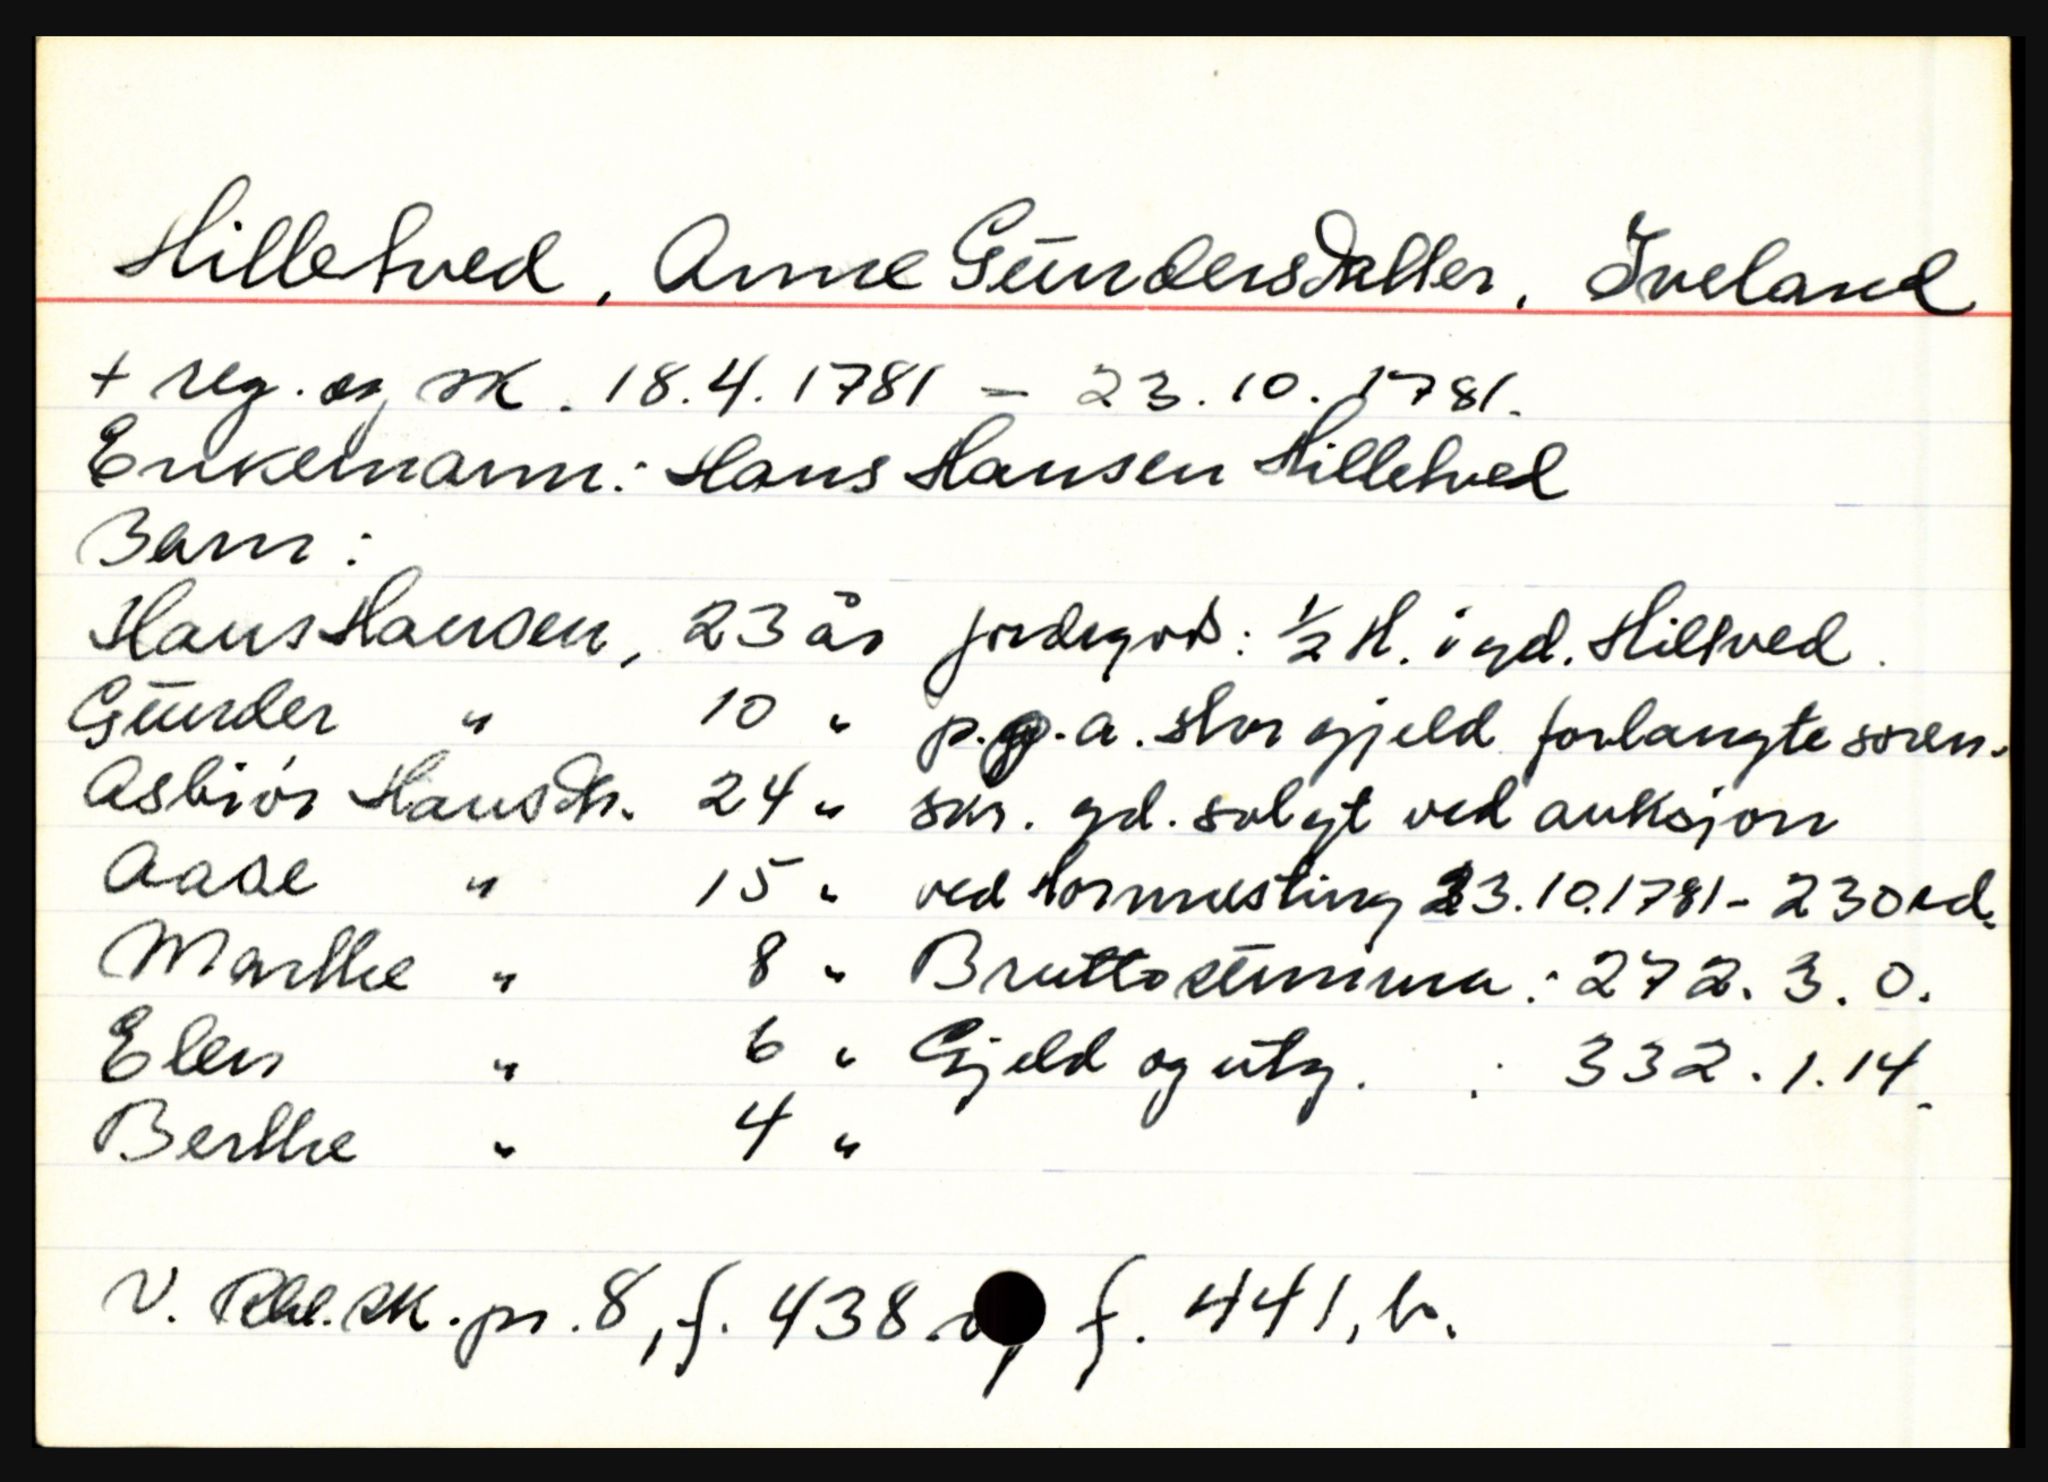 Hilletved, Anne Gundersdatter, Iveland
+ reg. og sk. 18.4.1781 - 23.10.1781.
Enkemann: Hans Hansen Hilletved
Barn:
Hans Hansen, 23 år jordegods: ½ H. i gd. Hiltved.
Gunder " 10 " p.g.a. stor gjeld forlangte soren-
Asbiør Hansdtr. 24 " skr. gd. solgt ved auksjon
Aase " 15 " ved Hornnesting 23.10.1781 - 230 rd.
Marthe " 8 " Bruttosumma: 272. 3. 0.
Elen " 6 " Gjeld og utg. : 332. 1. 14.
Berthe " 4 "
V. Rbl. sk. pr. 8, f. 438 f. 441, b.